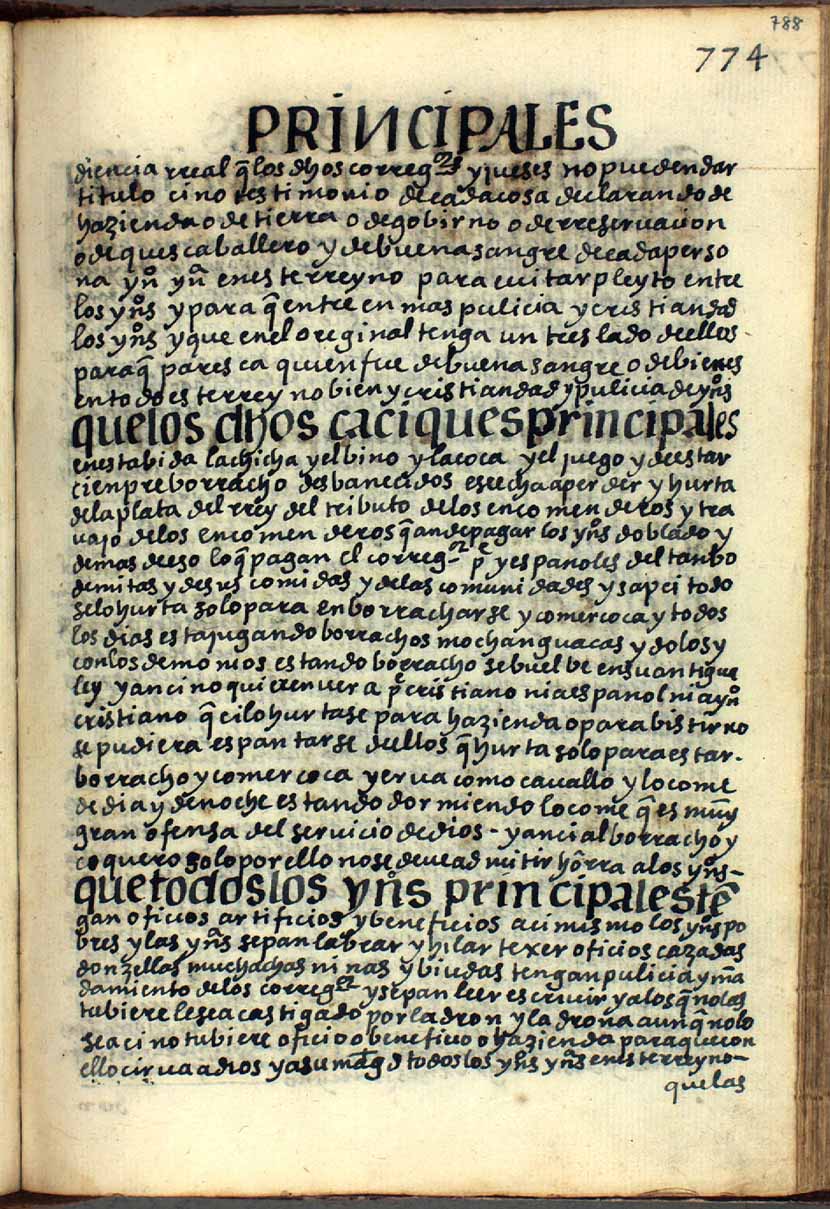 788
774
PRINCIPALES
diencia rreal q̃ los dhos correg.res y jueses no pueden dar
titulo cino testimonio de cada cosa declarando de
hazienda o de tierra o de gobirno o de rreseruacion
o de ques caballero y de buena sangre de cada perso
na yn̊ yñ en este rreyno para euitar pleyto entre
los yn̊s y para q̃ entre en mas pulicia y cristiandad
los yn̊s y que en el original tenga un treslado de ellos
para q̃ paresca quien fue de buena sangre o de bienes
en todo este rreyno bien y cristiandad y pulicia de yn̊s
que los dhos caciques principales
en esta bida la chicha y el bino y la coca y el juego y de estar
cienpre borracho desbanecidos es echa a perder y hurta
de la plata del rrey del tributo de los encomenderos y tra
uajo de los encomenderos q̃ an de pagar los yn̊s doblado y
demas de eso lo q̃ pagan el correg.or p.e y espanoles del tanbo
de mitas y de sus comidas y de las comunidades y sapci todo
se lo hurta solo para enborracharse y comer coca y todos
los dias esta jugando borrachos mochan guacas y dolos y
con los demonios estando borracho se buelbe en su antigua
ley y anci no quieren uer a p.e cristiano ni a espanol ni a yn̊
cristiano q̃ ci lo hurtase para hazienda o para bistir no
se pudiera espantarse de ellos q̃ hurta solo para estar
borracho y comer coca yerua como cauallo y lo come
de dia y de noche estando dormiendo lo come q̃ es muy
gran ofensa del seruicio de dios - y anci al borracho y
coquero solo por ello no se deue admitir hõrra a los yn̊s-
que todos los yn̊s principales tẽ
gan oficios artificios y beneficios acimismo los yn̊s po
bres y las yñs sepan labrar y hilar texer oficios cazadas
donzellas muchachas ninas y biudas tengan pulicia y mã
damiento de los correg.res y sepan leer escriuir y a los q̃ no las
tubiere le sea castigado por ladron y ladrona aunq̃ no lo
sea ci no tubiere oficio o beneficio o hazienda para que con
ello cirua a dios y a su mag.d todos los yn̊s yñs en este rreyno-
que las